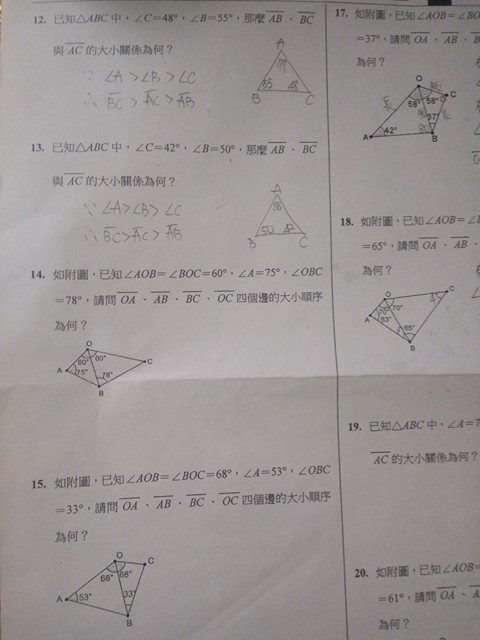 12. 已知△ABC 中，∠C=48°，∠B=55°，那麼 AB 、 BC
與 AC 的大小關係為何？
∵ ∠A > ∠B > ∠C
∴ BC > AC > AB
A
77
55 48
B C
13. 已知△ABC 中，∠C=42°，∠B=50°，那麼 AB 、 BC
與 AC 的大小關係為何？
∵ ∠A > ∠B > ∠C
∴ BC > AC > AB
A
88
50 42
B C
14. 如附圖，已知∠AOB=∠BOC=60°，∠A=75°，∠OBC
=78°，請問 OA 、 AB 、 BC 、 OC 四個邊的大小順序
為何？
O
60° 60°
A 75° C
78°
B
15. 如附圖，已知∠AOB=∠BOC=68°，∠A=53°，∠OBC
=33°，請問 OA 、 AB 、 BC 、 OC 四個邊的大小順序
為何？
O C
68° 68°
A 53° 33°
B
17. 如附圖，已知∠AOB=∠BO
=37°，請問 OA 、 AB 、 B
為何？
O
58° 58° C
長
37°
A 42° B
18. 如附圖，已知∠AOB=∠
=65°，請問 OA 、 AB 、
為何？
O C
70° 70° 45
A 63°
65°
B
19. 已知△ABC 中，∠A=7
AC 的大小關係為何？
20. 如附圖，已知∠AOB=
=61°，請問 OA 、 A
為何？